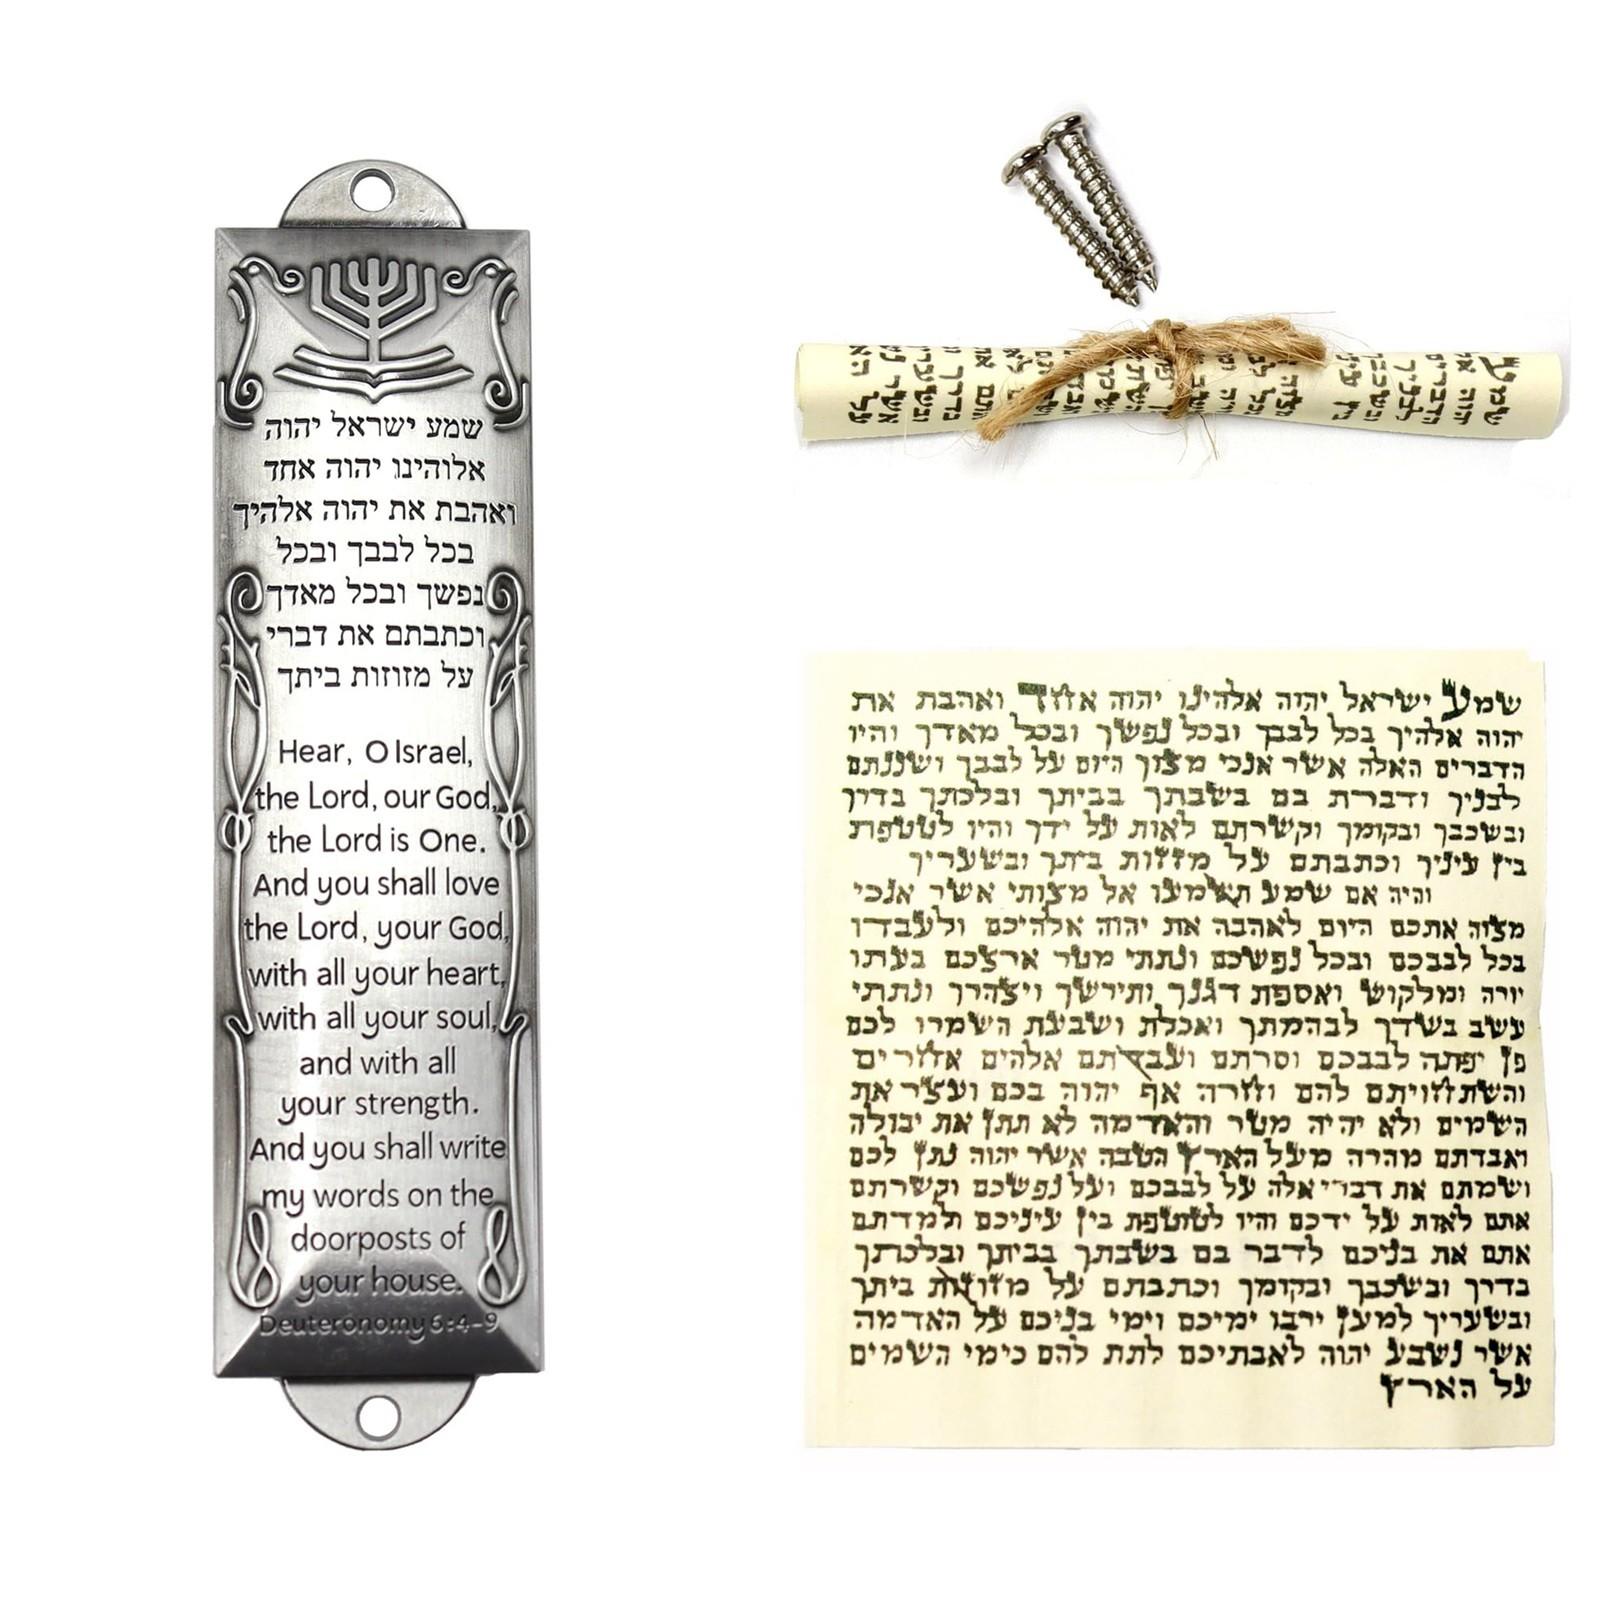 שמע ישראל יהוה
אלוהינו יהוה אחד
ואהבת את יהוה אלהיך
בכל לבבך ובכל
נפשך ובכל מאדך
וכתבתם את דברי
על מזוזות ביתך
Hear, O Israel,
the Lord, our God,
the Lord is One.
And you shall love
the Lord, your God,
with all your heart,
with all your soul,
and with all
your strength.
And you shall write
my words on the
doorposts of
your house.
Deuteronomy 6:4-9
שמע ישראל יהוה אלהינו יהוה אחד ואהבת את
יהוה אלהיך בכל לבבך ובכל נפשך ובכל מאדך והיו
הדברים האלה אשר אנכי מצוך היום על לבבך ושננתם
לבניך ודברת בם בשבתך בביתך ובלכתך בדרך
ובשכבך ובקומך וקשרתם לאות על ידך והיו לטטפת
בין עיניך וכתבתם על מזזות ביתך ובשעריך
והיה אם שמע תשמעו אל מצותי אשר אנכי
מצוה אתכם היום לאהבה את יהוה אלהיכם ולעבדו
בכל לבבכם ובכל נפשכם ונתתי מטר ארצכם בעתו
יורה ומלקוש ואספת דגנך ותירשך ויצהרך ונתתי
עשב בשדך לבהמתך ואכלת ושבעת השמרו לכם
פן יפתה לבבכם וסרתם ועבדתם אלהים אחרים
והשתחויתם להם וחרה אף יהוה בכם ועצר את
השמים ולא יהיה מטר והאדמה לא תתן את יבולה
ואבדתם מהרה מעל הארץ הטבה אשר יהוה נתן לכם
ושמתם את דברי אלה על לבבכם ועל נפשכם וקשרתם
אתם לאות על ידכם והיו לטוטפת בין עיניכם ולמדתם
אתם את בניכם לדבר בם בשבתך בביתך ובלכתך
בדרך ובשכבך ובקומך וכתבתם על מזוזות ביתך
ובשעריך למען ירבו ימיכם וימי בניכם על האדמה
אשר נשבע יהוה לאבתיכם לתת להם כימי השמים
על הארץ